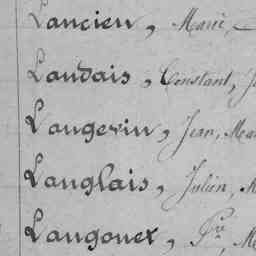 Lancien, Marie
Landais, Constant, J
Langevin, Jean, Ma
Langlais, Julien, M
Langonet, Pre, M